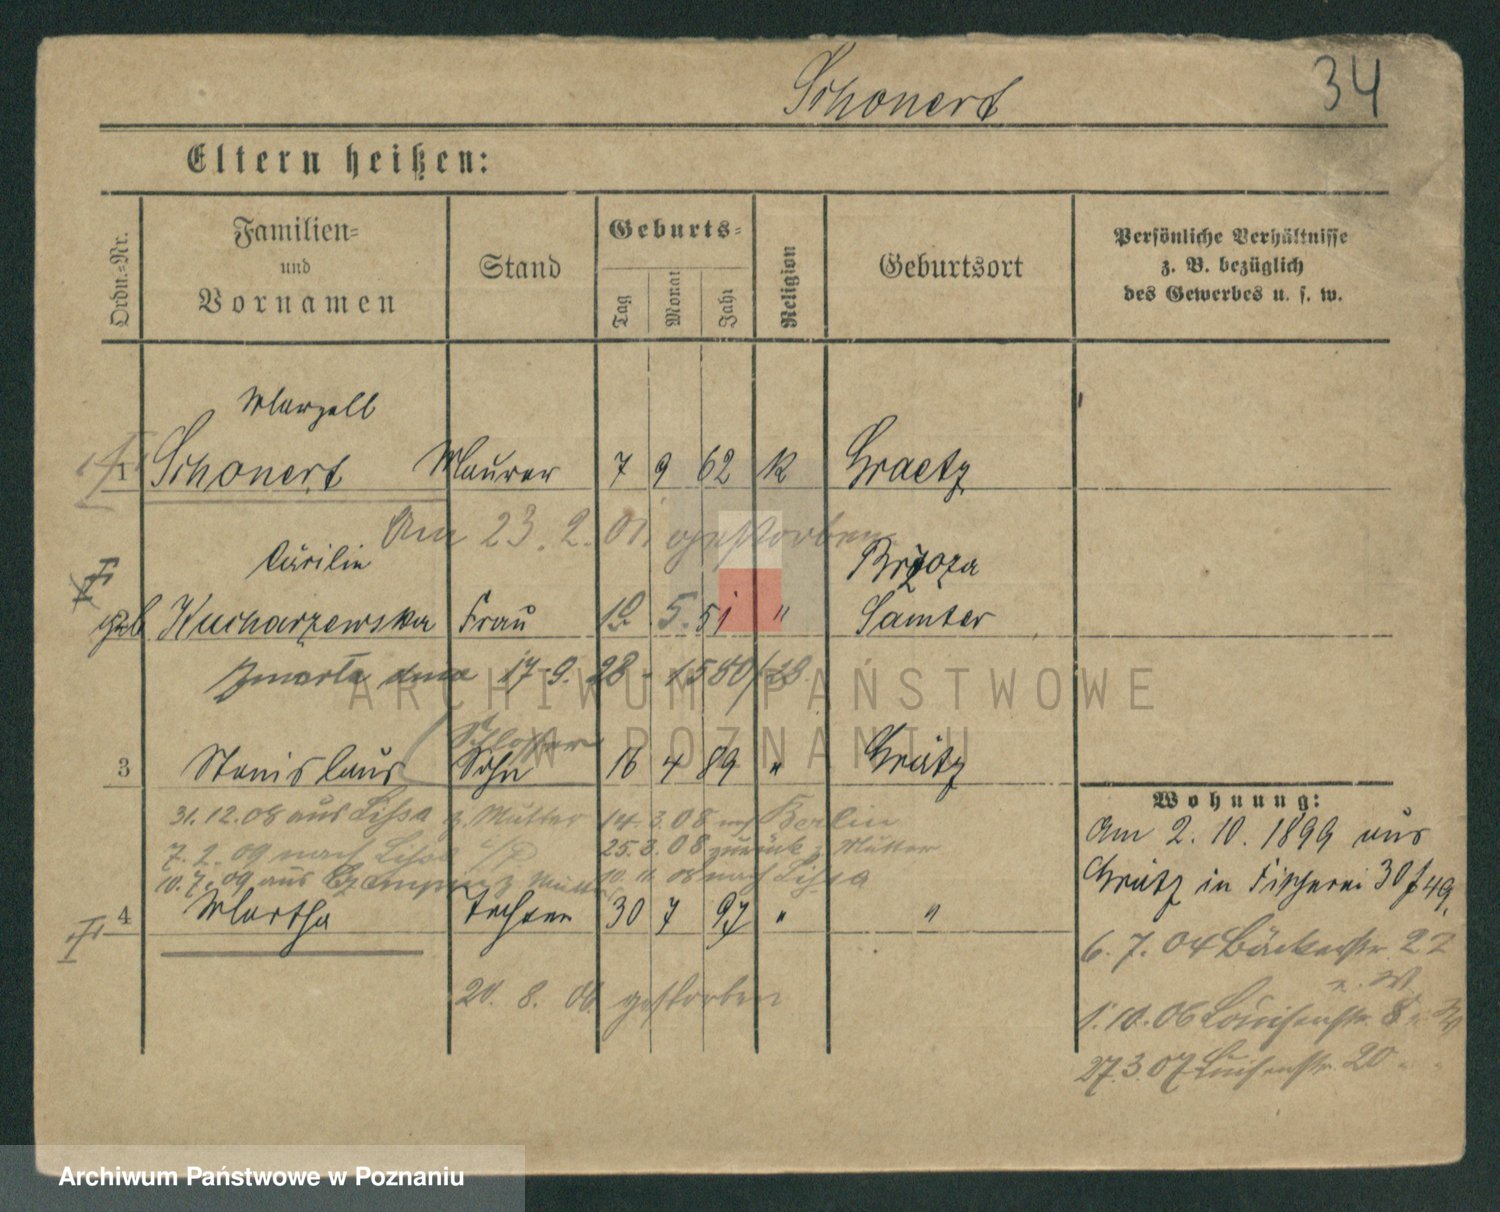 Schonert
34
Eltern heißen:
Ordn.-Nr.
Familien-
und
Vornamen
Stand
Geburts-
Tag
Monat
Jahr
Religion
Geburtsort
Persönliche Verhältnisse
z. B. bezüglich
des Gewerbes u. s. w.
Marzell
1 Schonert Maurer 7 9 62 K Graetz
Am 23.2.01. gestorben
Cäcilie Brzoza
geb Kucharzewska Frau 10 5. 51 " Samter
Zmarła dnia 17-9. 28 - 1580/28
Schlosser
3 Stanislaus Sohn 16 4 89 " Grätz
31.12.08 aus Lissa z. Mutter 14.3.08 nach Berlin
7.2.09 nach Lissa 25.3.08 zurück z. Mutter
10.7.09 aus z Mutter 10.11.08 nach Lissa
4 Martha Tochter 30 7 97 " "
20. 8. 06 gestorben
Wohnung:
Am 2.10.1899 aus
Grätz in Fischerei 30 f 49,
6.7.04 Bäckerstr. 22
1.10.06 Louisenstr. 8
27.3.07 Luisenstr. 20
ARCHIWUM PAŃSTWOWE
W POZNANIU
Archiwum Państwowe w Poznaniu